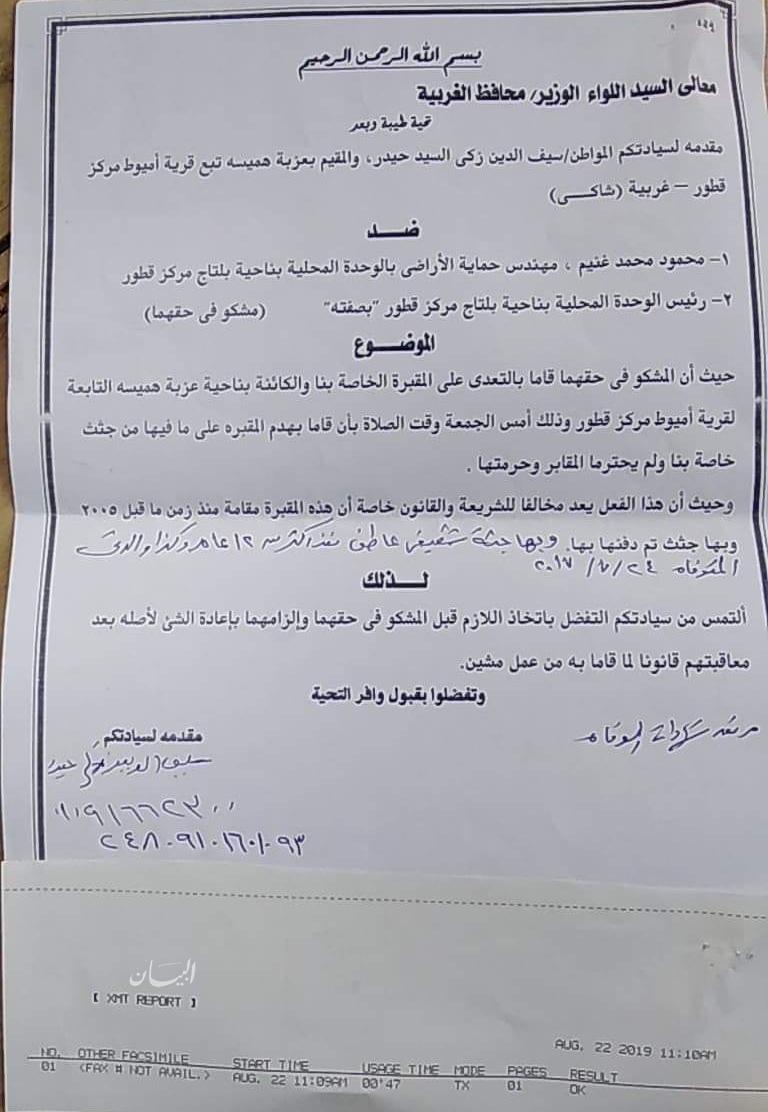 بسم الله الرحمن الرحيم
معالى السيد اللواء الوزير/ محافظ الغربية
تحية طيبة وبعد
مقدمه لسيادتكم المواطن/سيف الدين زكى السيد حيدر، والمقيم بعزبة هميسه تبع قرية أميوط مركز
قطور – غربية (شاكـــى)
ضـــد
١- محمود محمد غنيم ، مهندس حماية الأراضى بالوحدة المحلية بناحية بلتاج مركز قطور
٢- رئيس الوحدة المحلية بناحية بلتاج مركز قطور "بصفته" (مشكو فى حقهما)
الموضـــوع
حيث أن المشكو فى حقهما قاما بالتعدى على المقبرة الخاصة بنا والكائنة بناحية عزبة هميسه التابعة
لقرية أميوط مركز قطور وذلك أمس الجمعة وقت الصلاة بأن قاما بهدم المقبره على ما فيها من جثث
خاصة بنا ولم يحترما المقابر وحرمتها .
وحيث أن هذا الفعل يعد مخالفا للشريعة والقانون خاصة أن هذه المقبرة مقامة منذ زمن ما قبل ٢٠٠٥
وبها جثث تم دفنها بها. وبها جثة شقيقى عاطف منذ اكثر من ١٢ عام وكذا والدتى
المتوفاه ٢٤/٧/٢٠١٧
لـــذلك
ألتمس من سيادتكم التفضل باتخاذ اللازم قبل المشكو فى حقهما وإلزامهما بإعادة الشئ لأصله بعد
معاقبتهم قانونا لما قاما به من عمل مشين.
وتفضلوا بقبول وافر التحية
مقدمه لسيادتكم
مرفق شهادات الوفاه
سيف الدين زكى حيدر
٢٤٨٠٩١٠١٦٠١٠٩٣
البيان
[ XMT REPORT ]
AUG. 22 2019 11:10AM
NO. OTHER FACSIMILE START TIME USAGE TIME MODE PAGES RESULT
01 <FAX # NOT AVAIL.> AUG. 22 11:09AM 00'47 TX 01 OK